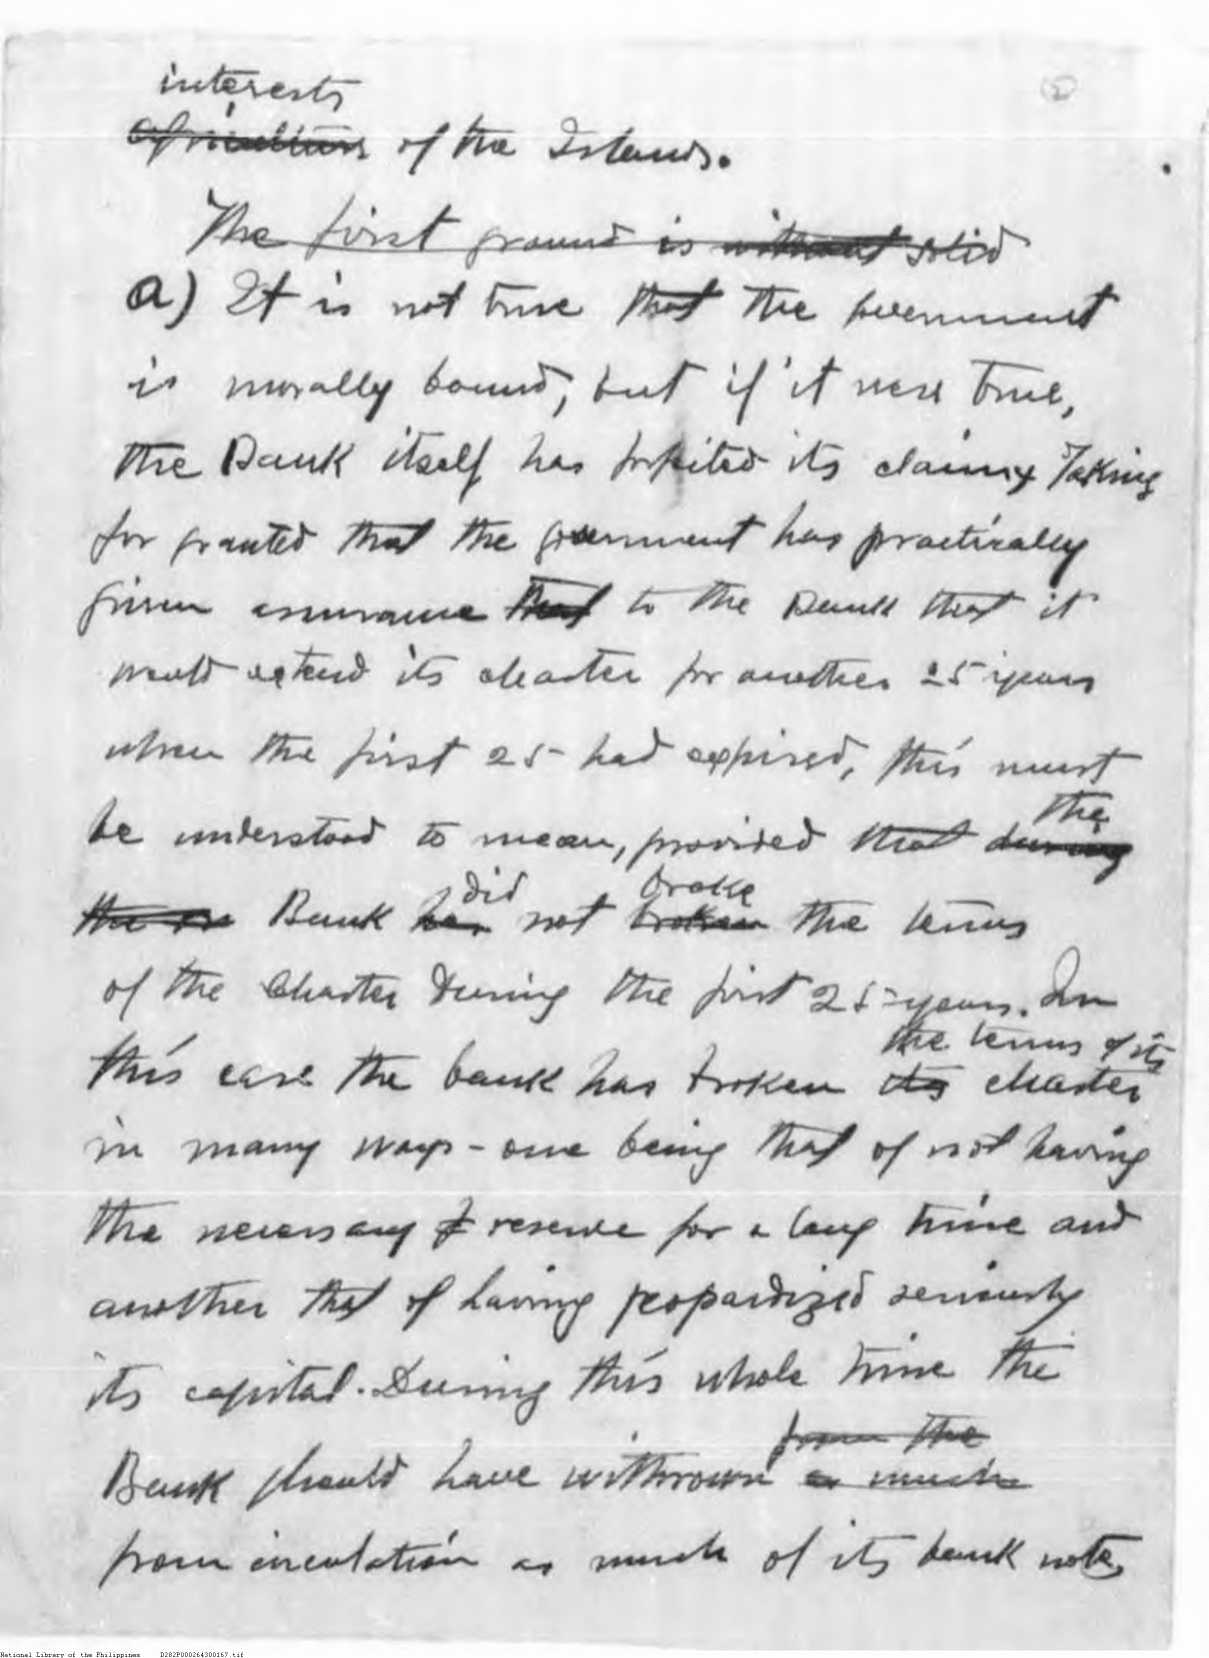 2
interests
agriculture of the Islands.
The first ground is without solid
a) It is not true that the government
is morally bound, but if it were true,
the Bank itself has forfeited its claim. Taking
for granted that the government has practically
given assurance that to the Bank that it
would extend its charter for another 25 years
when the first 25 had expired, this must
the
be understood to mean, provided that during
did broke
the Bank has not broken the terms
of the Charter during the first 25 years. In
the terms of its
this case the bank has broken its charter
in many ways - one being that of not having
the necessary reserve for a long time and
another that of having jeopardized seriously
its capital. During this whole time the
from the
Bank should have withrown as much
from circulation as much of its bank notes
National Library of the Philippines D282P000264300167.tif